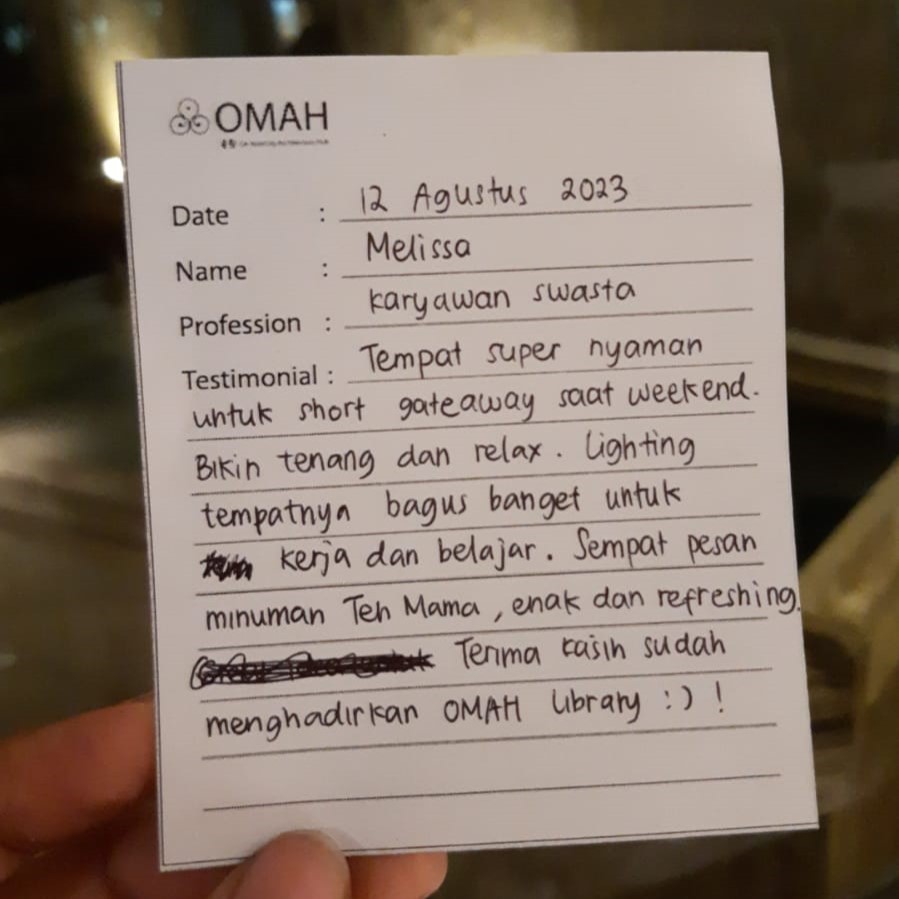 OMAH
Date : 12 Agustus 2023
Name : Melissa
Profession : karyawan swasta
Testimonial : Tempat super nyaman
untuk short gateaway saat weekend.
Bikin tenang dan relax. Lighting
tempatnya bagus banget untuk
kerja dan belajar. Sempat pesan
minuman Teh Mama, enak dan refreshing.
Terima kasih sudah
menghadirkan OMAH Library :) !